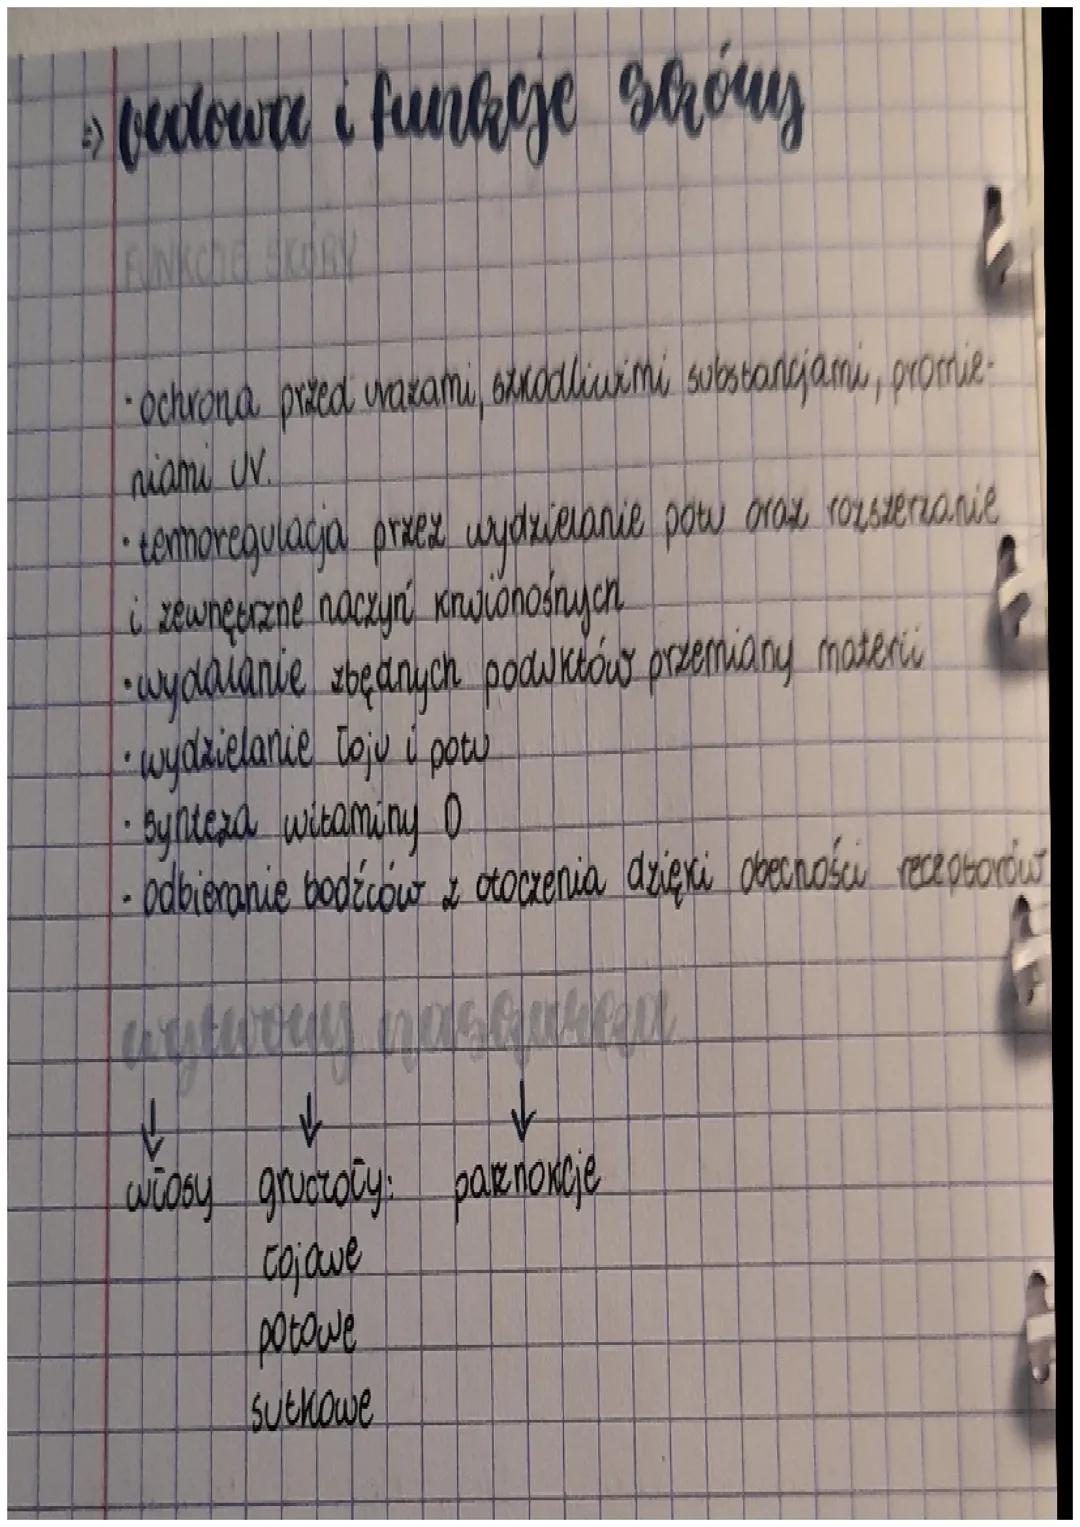 => budowa i funkcje skóry
FUNKCJE SKÓRY
· ochrona przed urazami, szkodliwimi substancjami, promie-
niami UV.
· termoregulacja przez wydzielanie potu oraz rozszerzanie
i zewnętrzne naczyń krwionośnych
· wydalanie zbędnych poduktów przemiany materii
· wydzielanie łoju i potu
· synteza witaminy D
· odbieranie bodźców z otoczenia dzięki obecności receptorów
wytwory naskórka
↓ ↓ ↓
włosy gruczoły: paznokcje
łojowe
potowe
sutkowe